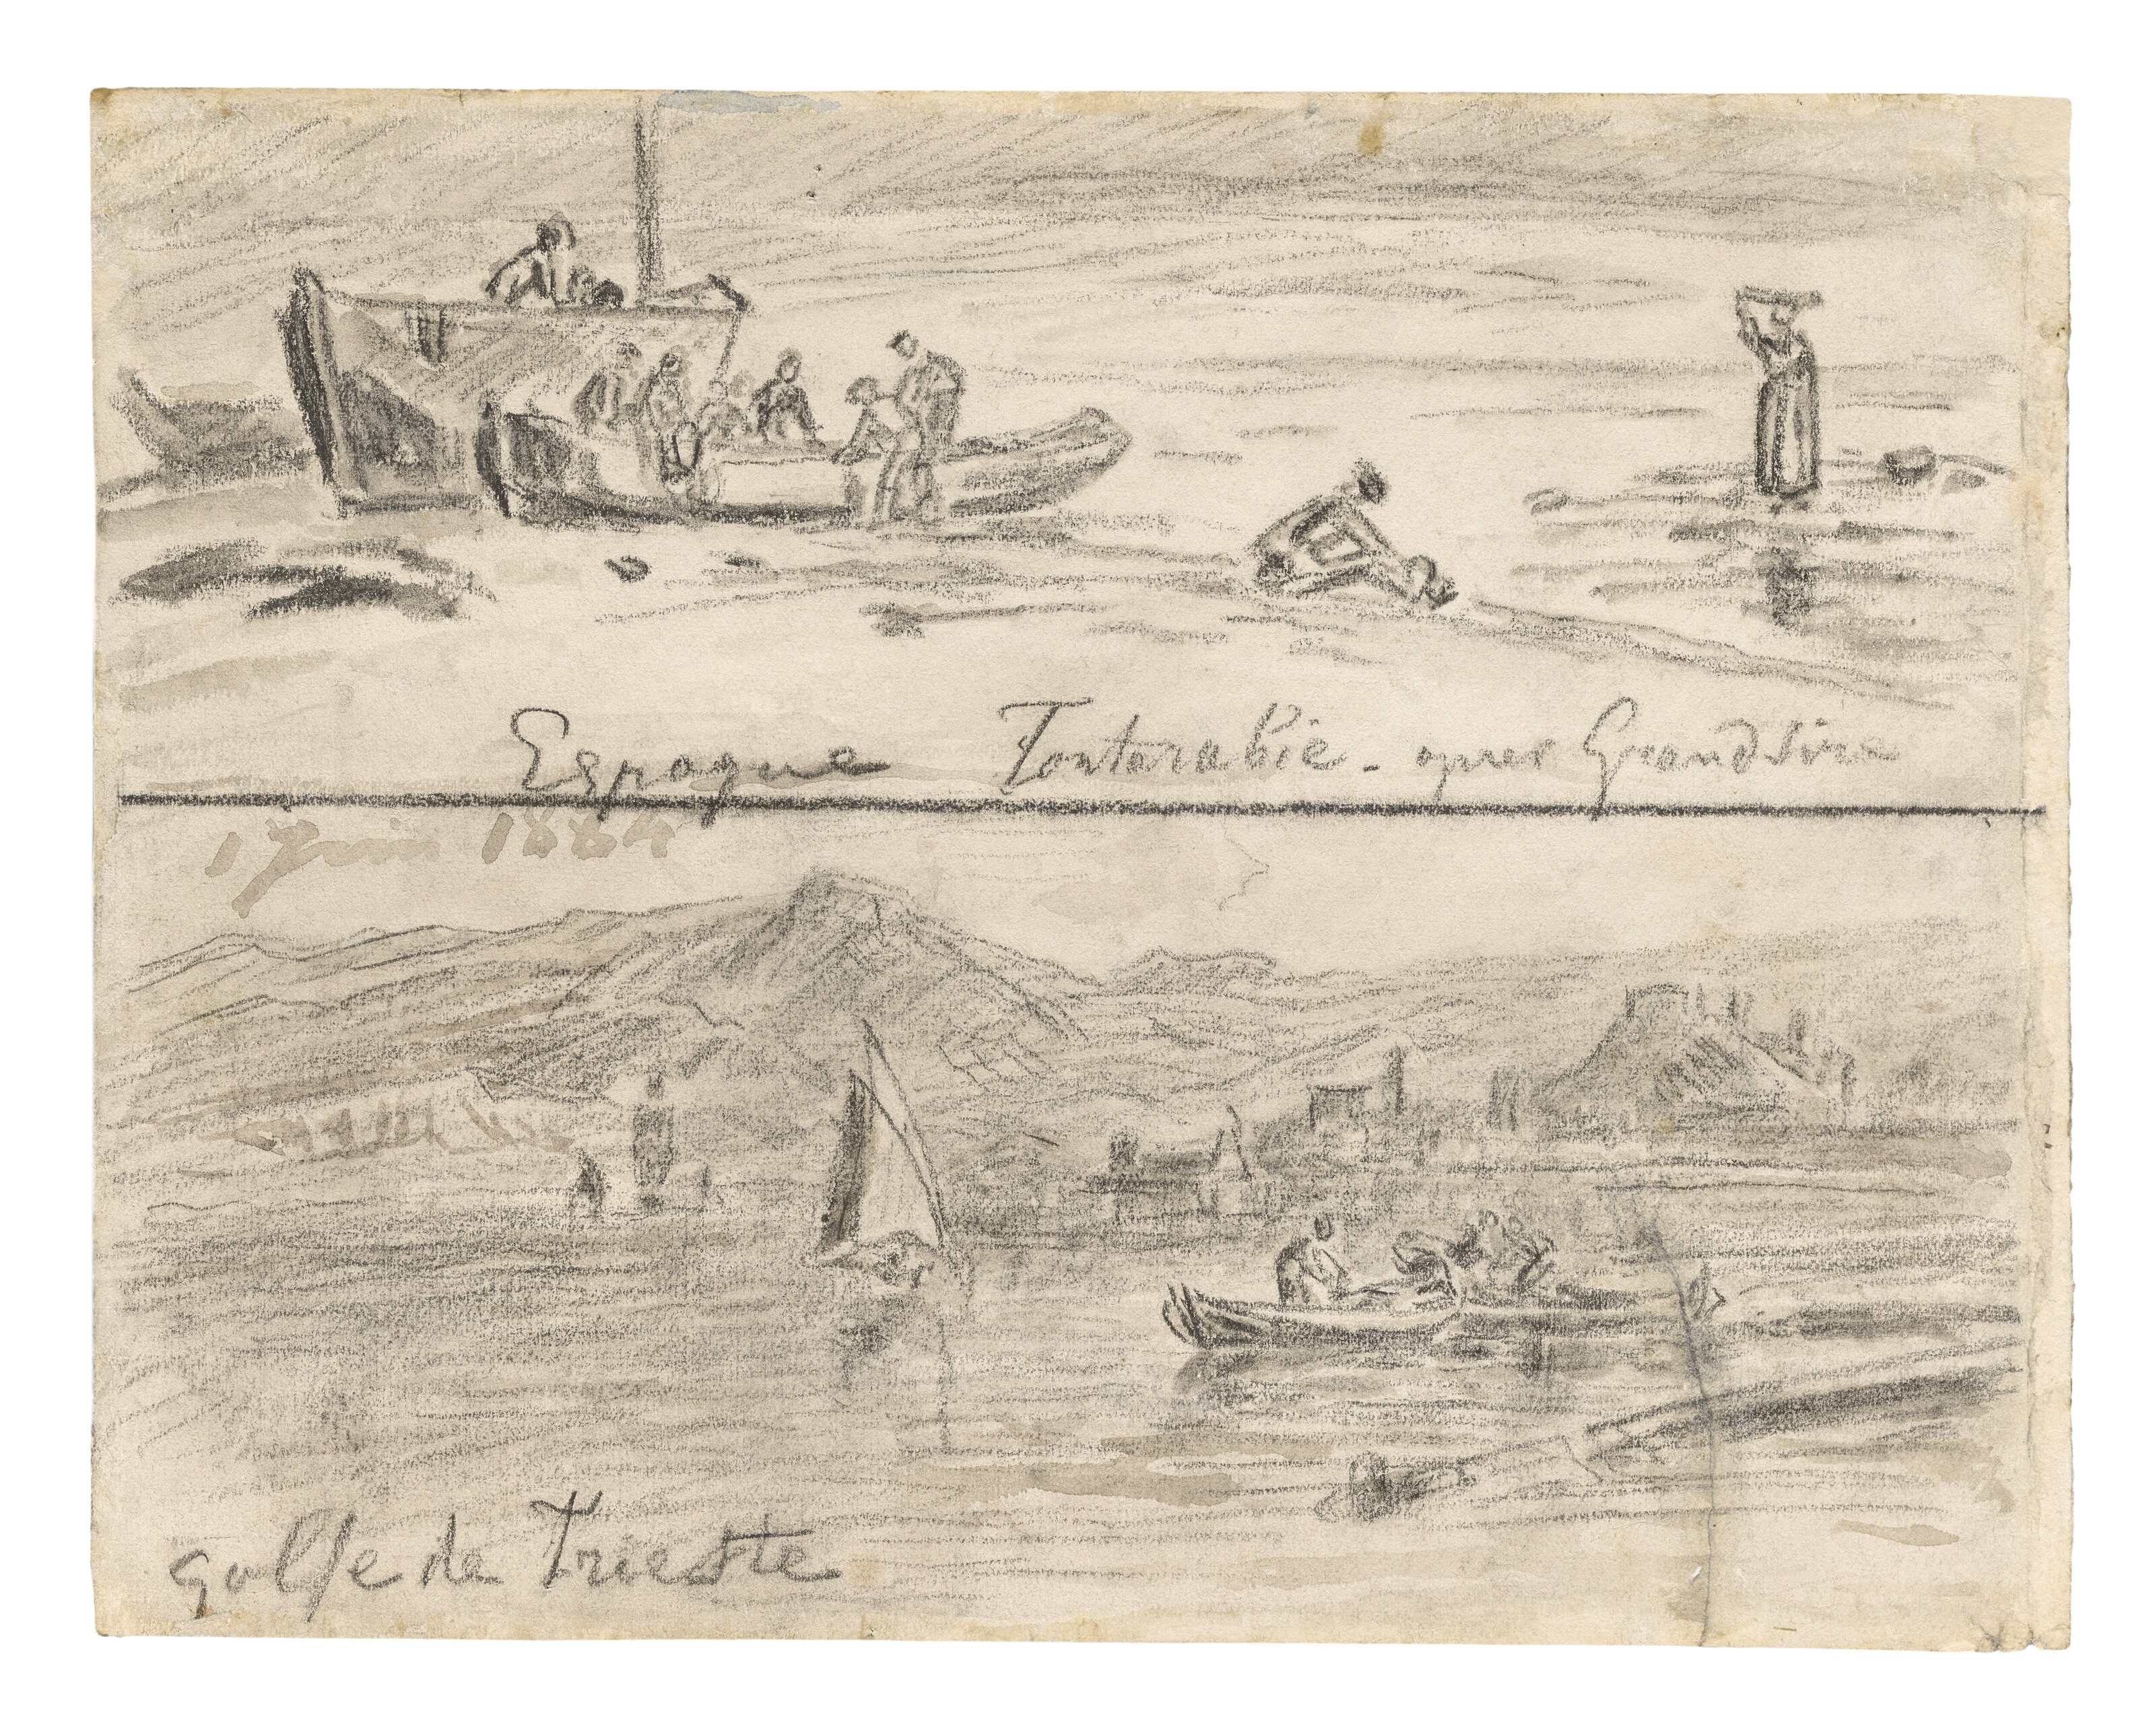 Espagne Fontarabie - apres Grandsire
1 Juin 1884
golfe de Trieste